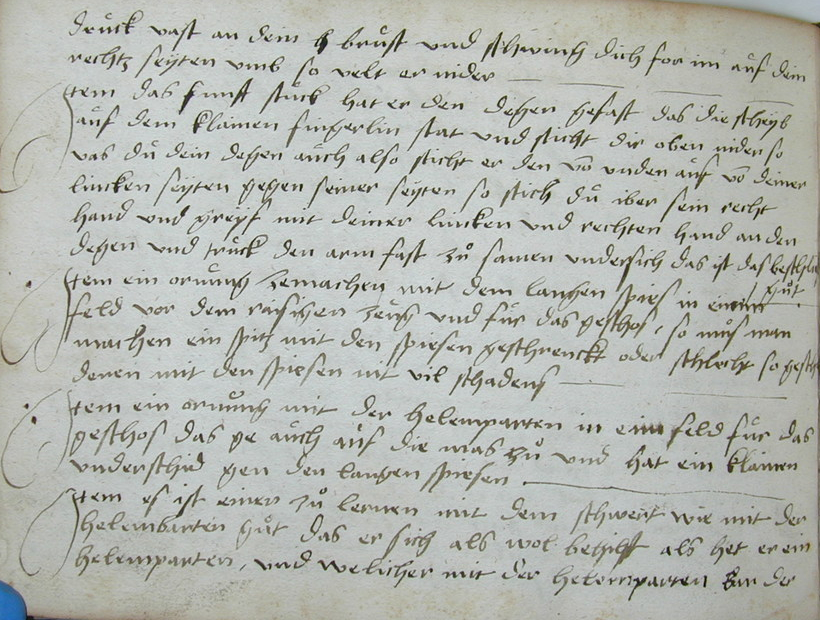 druck vast an dem h brust vnd schwing dich for im auf dein
rechtz seyten vmb so velt er nider
Item das funft stuck hat er den degen gefast das die scheyb
auf dem klainen fingerlin stat vnd sticht dir oben nider so
vas du dein degen auch also sticht er den vō vnden auf vō deiner
lincken seyten gegen seiner seyten so stich du iber sein recht
hand vnd greyf mit deiner lincken vnd rechten hand an den
degen vnd truck den arm fast zů samen vndersich das ist das beschlies
gůt
Item ein ornung zemachen mit dem langen spies in einem
feld vor dem raisigen zeug vnd fur das geschos, so mus man
machen ein spitz mit den spiesen geschrenckt oder schlecht so gesch
denen mit den spiesen nit vil schadens
Item ein ornung mit der helemparten in eim feld fur das
geschos das ge auch auf die mas zů vnd hat ein klainen
vnderschid gen den langen spiesen.
Item es ist einer zů lernen mit dem schwert wie mit der
helembarten gůt das er sich als wol behilft als het er ein
helemparten, vnd welicher mit der helemparten kan der